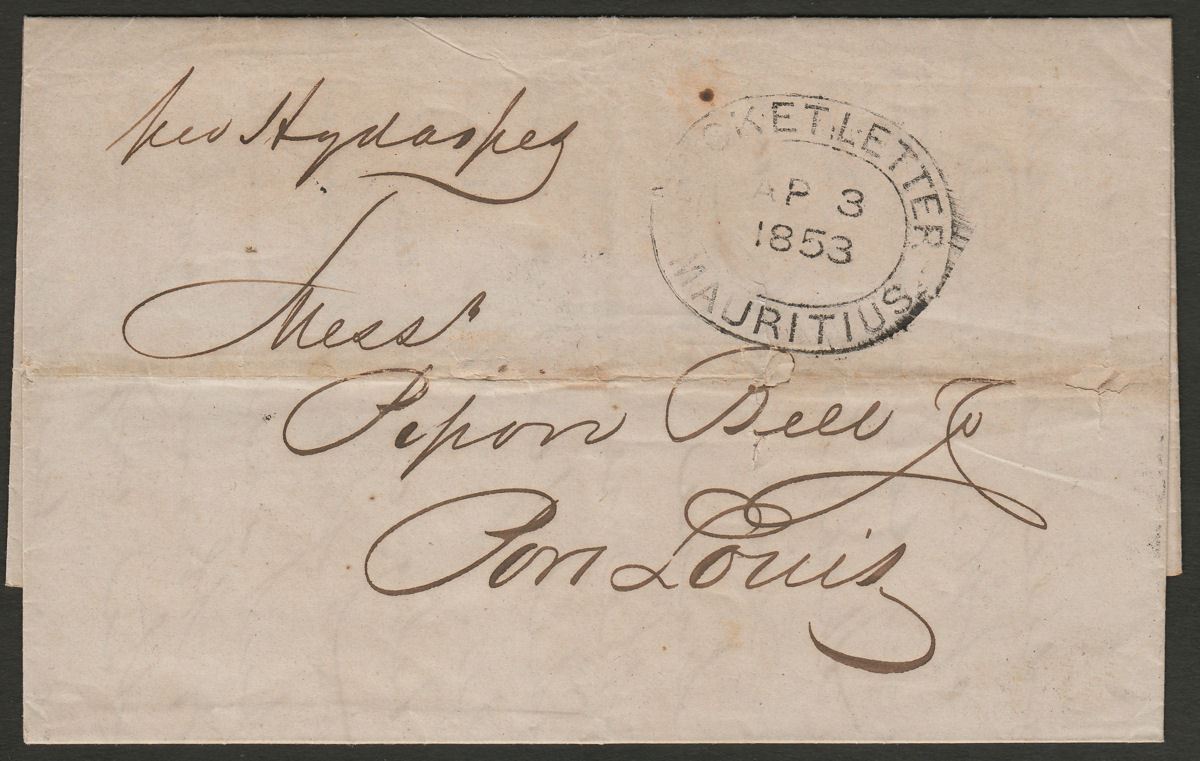 per Hydaspes
PACKET LETTER
AP 3
1853
MAURITIUS
Messrs
Pipon Bell &Co
Port Louis